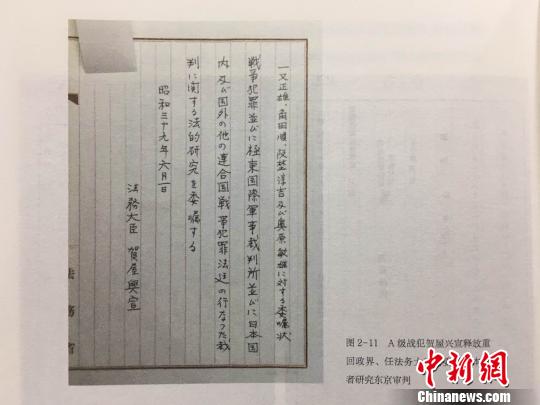 一又正雄、角田順、阪埜淳吉及び奥原敏雄に対する委嘱状
戦争犯罪並びに極東国際軍事裁判所並びに日本国
内及び国外の他の連合国戦争犯罪法廷の行なつた裁
判に関する法的研究を委嘱する
昭和三十九年六月一日
法務大臣 賀屋興宣
法務省
图2-11 A级战犯贺屋兴宣释放重
回政界、任法务大
者研究东京审判
中新网
www.chinanews.com